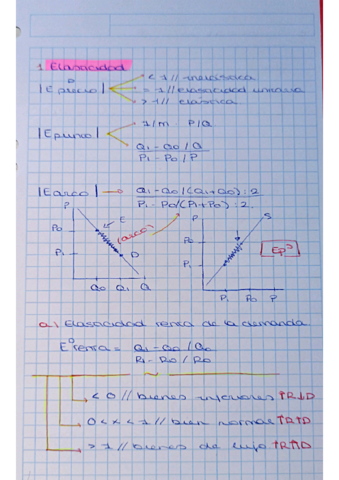 1. Elasticidad
|E precio| < 1 // inelástica
> 1 // elasticidad unitaria
> 1 // elástica
|E punto| 1/m · P/Q
Q1 - Q0 / Q
P1 - P0 / P
|E arco| Q1 - Q0 / (Q1 + Q0) : 2
P1 - P0 / (P1 + P0) : 2
P
E
P0
(arco)
P1
D
Q0 Q1 Q
P
S
P0
P1
P1 P0 P
a) Elasticidad renta de la demanda
E renta = Q1 - Q0 / Q0
R1 - R0 / R0
< 0 // bienes inferiores ↑R↓D
0 < x < 1 // bien normal ↑R↑D
> 1 // bienes de lujo ↑R↑↑D